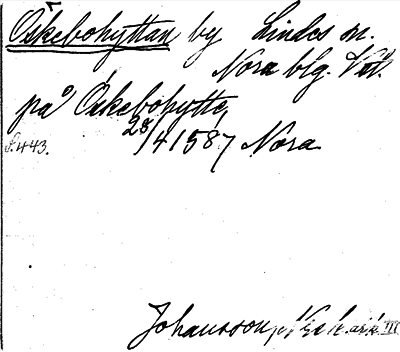 Öskebohyttan by Lindes sn.
Nora blg. Vstl.
på Öskebohytte,
28/4 1587 Nora
s. 443.
Johansson, Nba h. ark. III